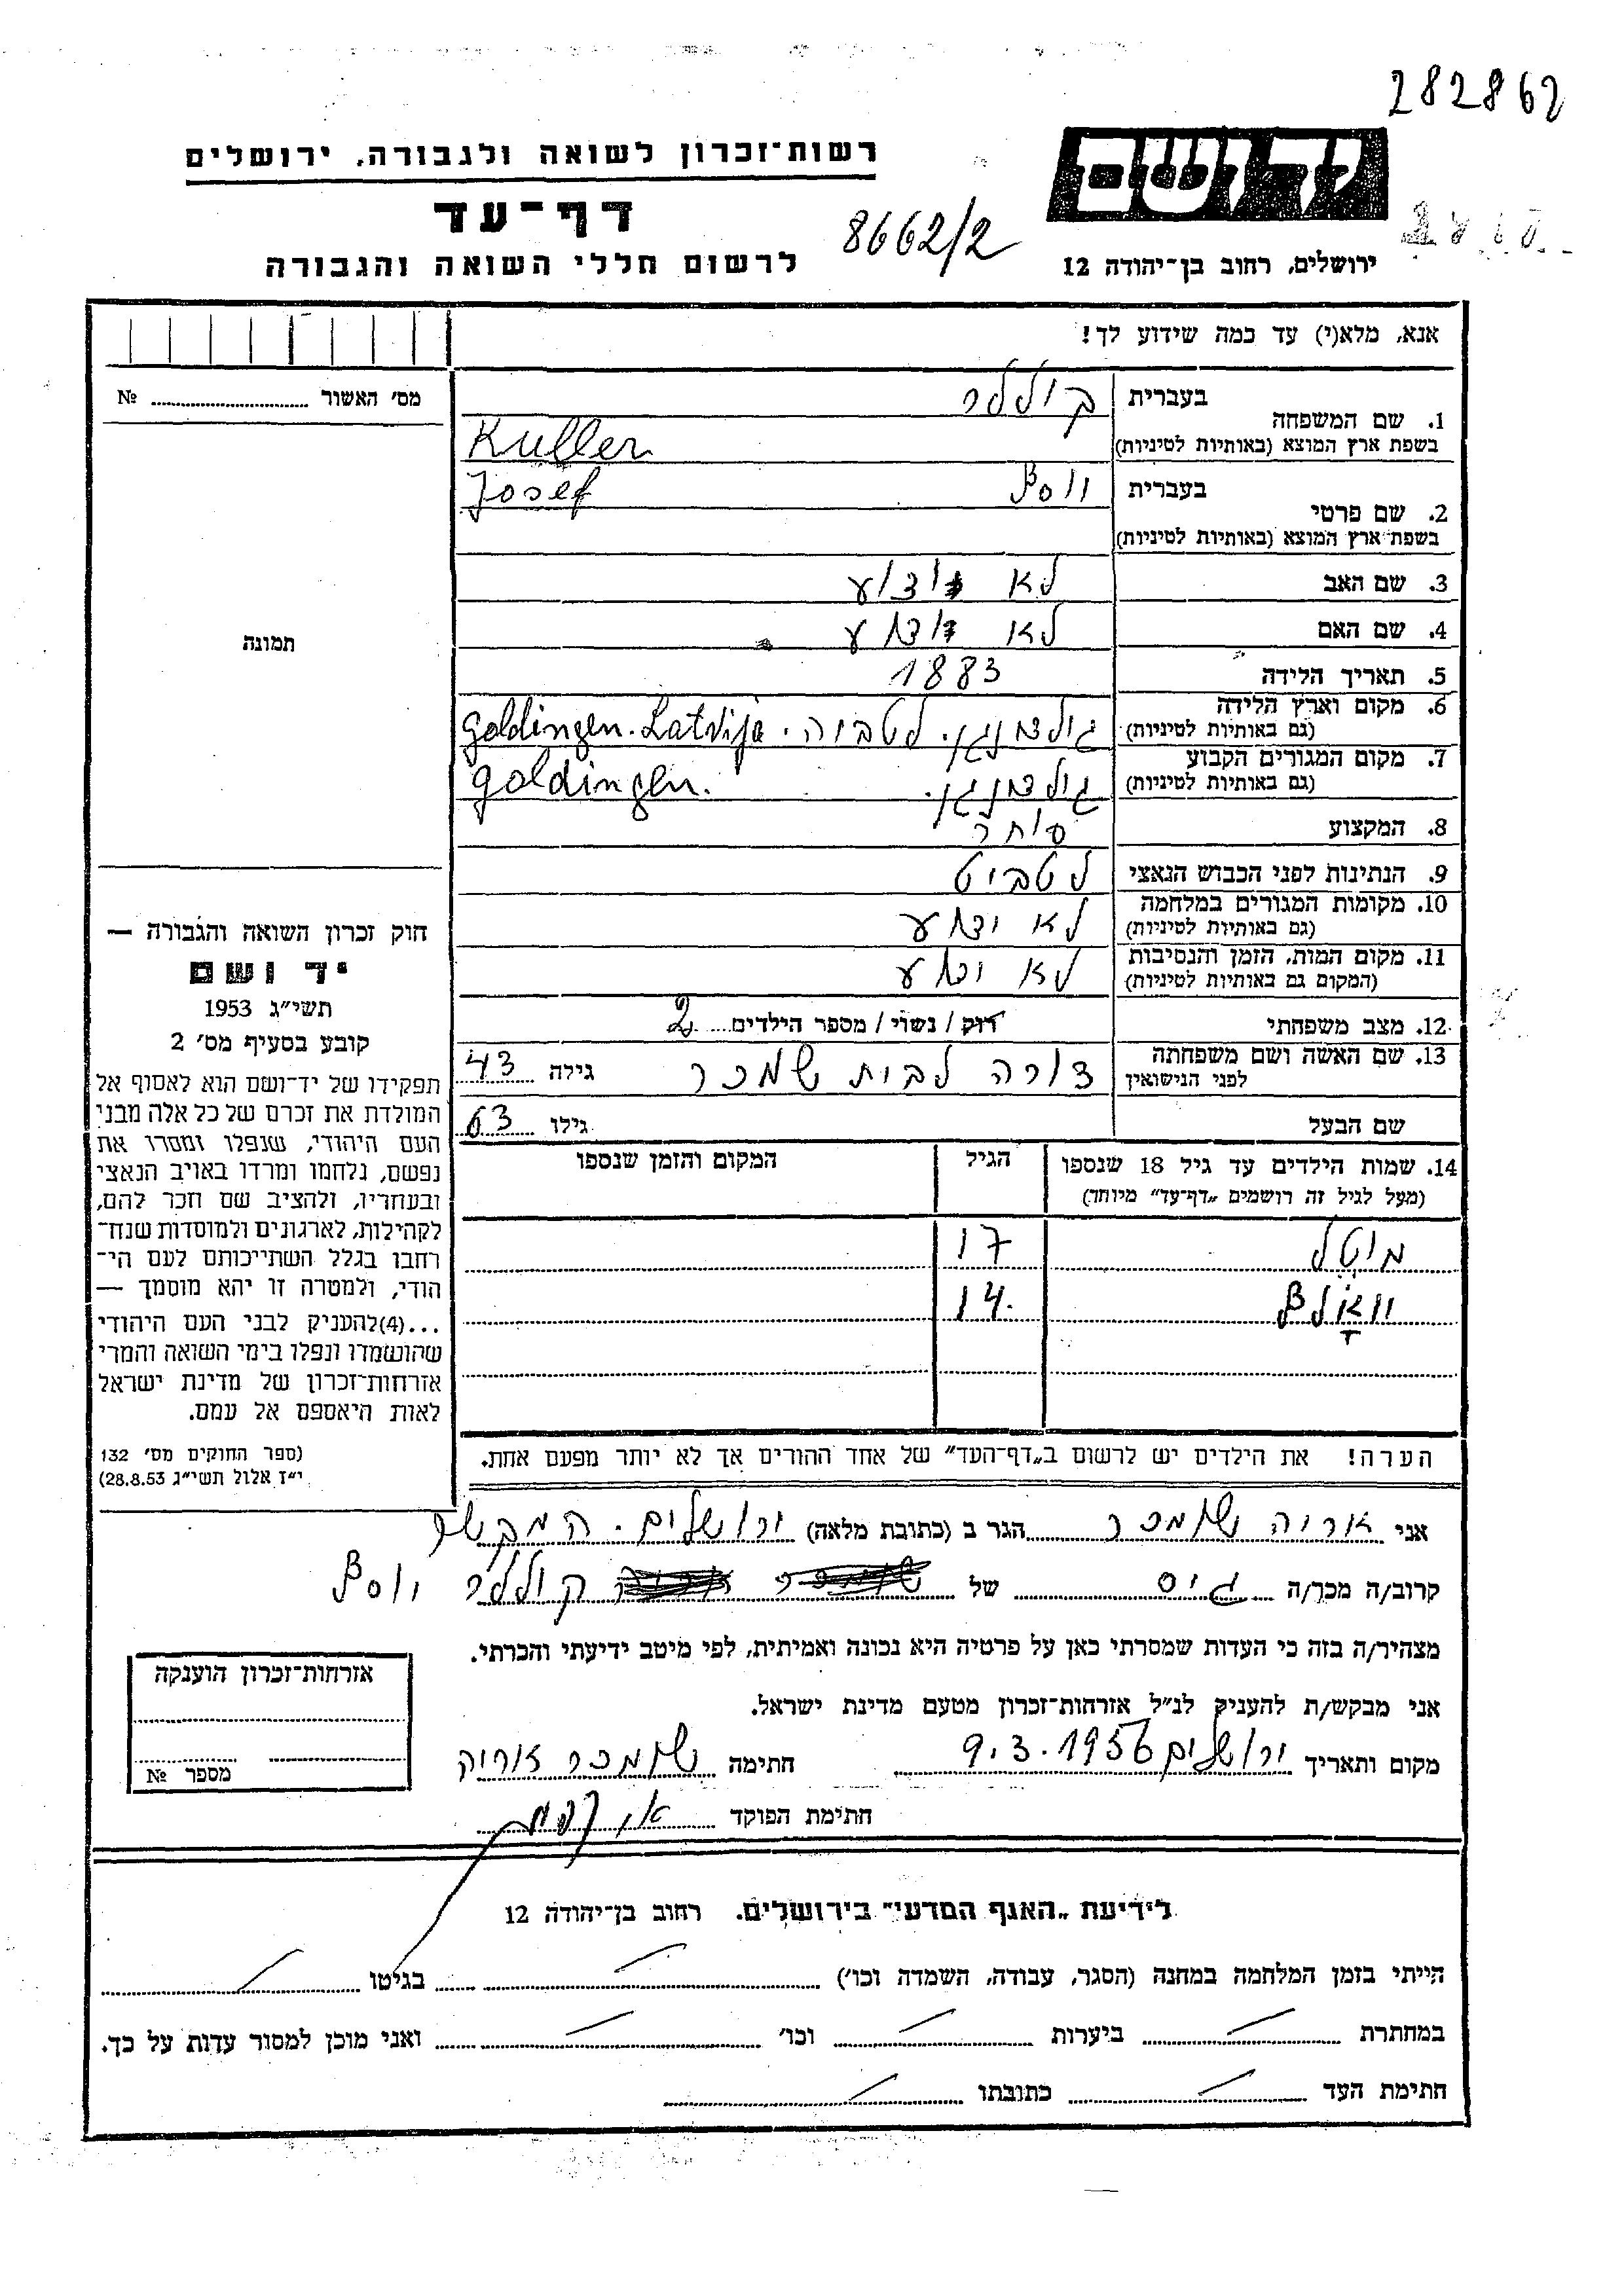 282862
יד ושם
רשות־זכרון לשואה ולגבורה, ירושלים
דף־עד
8662/2
ירושלים, רחוב בן־יהודה 12
לרשום חללי השואה והגבורה
אנא, מלא(י) עד כמה שידוע לך!
מס׳ האשור № 
1. שם המשפחה
בעברית קוללר
בשפת ארץ המוצא (באותיות לטיניות) Kuller
2. שם פרטי
בעברית יוסף Josef
בשפת ארץ המוצא (באותיות לטיניות)
3. שם האב לא ידוע
4. שם האם לא ידוע
תמונה
5. תאריך הלידה 1883
6. מקום וארץ הלידה
(גם באותיות לטיניות) גולדינגן. לטביה. Goldingen. Latvija
7. מקום המגורים הקבוע
(גם באותיות לטיניות) גולדינגן. Goldingen.
8. המקצוע סוחר
9. הנתינות לפני הכבוש הנאצי לטבית
10. מקומות המגורים במלחמה
(גם באותיות לטיניות) לא ידוע
11. מקום המות, הזמן והנסיבות
(המקום גם באותיות לטיניות) לא ידוע
12. מצב משפחתי רוק / נשוי / מספר הילדים 2
13. שם האשה ושם משפחתה
לפני הנישואין דורה לבית שומכר גילה 43
שם הבעל גילו 63
14. שמות הילדים עד גיל 18 שנספו הגיל המקום והזמן שנספו
(מעל לגיל זה רושמים „דף־עד״ מיוחד)
מוטל 17
וואלף 14
הערה! את הילדים יש לרשום ב„דף־העד״ של אחד ההורים אך לא יותר מפעם אחת.
חוק זכרון השואה והגבורה —
יד ושם
תשי״ג 1953
קובע בסעיף מס׳ 2
תפקידו של יד־ושם הוא לאסוף אל
המולדת את זכרם של כל אלה מבני
העם היהודי, שנפלו ומסרו את
נפשם, נלחמו ומרדו באויב הנאצי
ובעוזריו, ולהציב שם וזכר להם,
לקהילות, לארגונים ולמוסדות שנח־
רחבו בגלל השתייכותם לעם הי־
הודי, ולמטרה זו יהא מוסמך —
...(4)להעניק לבני העם היהודי
שהושמדו ונפלו בימי השואה והמרי
אזרחות־זכרון של מדינת ישראל
לאות היאספם אל עמם.
(ספר החוקים מס׳ 132
י״ז אלול תשי״ג 28.8.53)
אני אריה שומכר הגר ב (כתובת מלאה) ירושלים. המבשר
קרוב/ה מכר/ה גיס של קוללר יוסף
מצהיר/ה בזה כי העדות שמסרתי כאן על פרטיה היא נכונה ואמיתית, לפי מיטב ידיעתי והכרתי.
אני מבקש/ת להעניק לנ״ל אזרחות־זכרון מטעם מדינת ישראל.
מקום ותאריך ירושלים 9.3.1956 חתימה שומכר אריה
חתימת הפוקד
אזרחות־זכרון הוענקה
מספר №
לידיעת „האגף המדעי״ בירושלים. רחוב בן־יהודה 12
הייתי בזמן המלחמה במחנה (הסגר, עבודה, השמדה וכו׳) בגיטו
במחתרת ביערות וכו׳ ואני מוכן למסור עדות על כך.
חתימת העד כתובתו